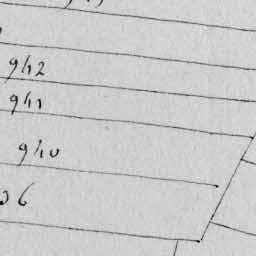 942
941
940
36